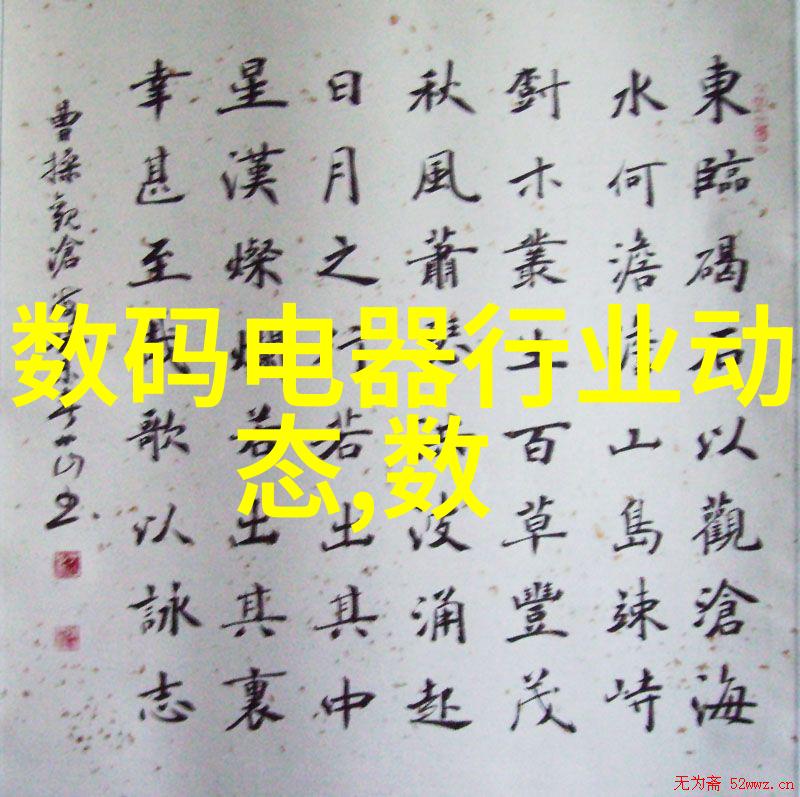 数码电器行业动
态,数
東臨碣石以觀滄海
水何澹澹山島竦峙
尌木叢生百草豐茂
秋風蕭瑟洪波涌起
日月之行若出其中
星漢燦爛若出其裏
幸甚至哉歌以詠志
曹操觀滄
无为斋 52wwz.cn